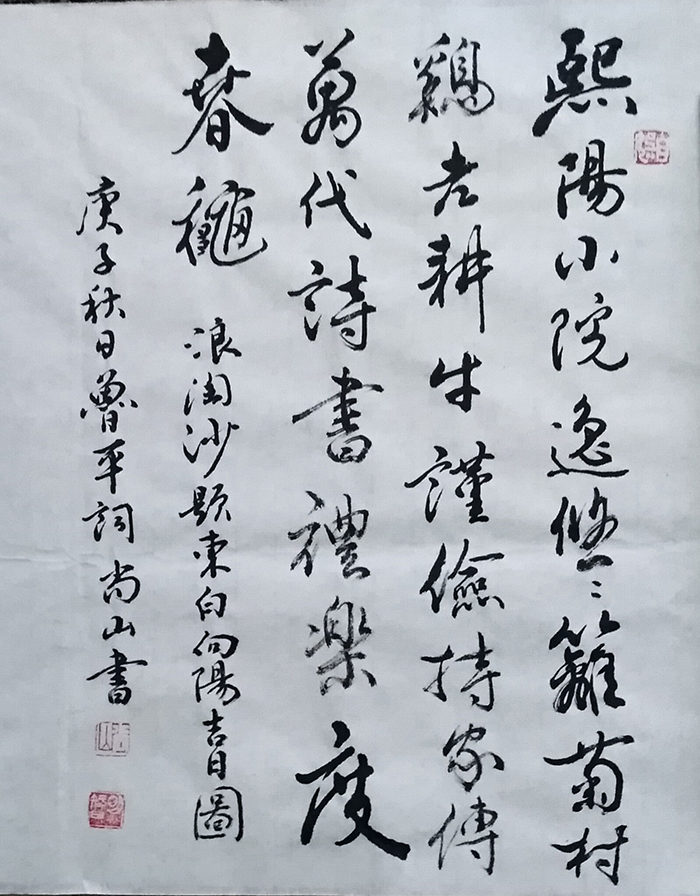 熙陽小院逸悠〻籬菊村
鷄老耕牛謹儉持家傳
萬代詩書禮樂度
春龝
浪淘沙題東白向陽吉日圖
庚子秋日魯平詞尚山書